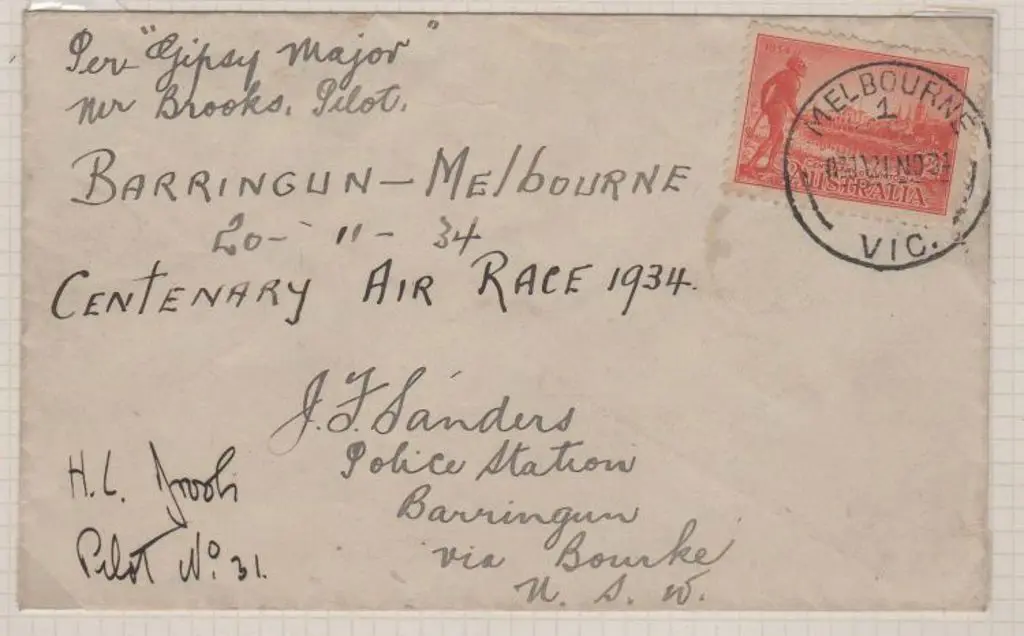 Per "Gipsy Major"
Mr Brooks, Pilot.
BARRINGUN — MElbOURNE
20 - " - 34
CENTENARY AIR RACE 1934.
J. F. Sanders
Police Station
Barringun
via Bourke
N. S. W.
H.L. Brook
Pilot No. 31.
1934
AUSTRALIA
MELBOURNE
1
VIC.